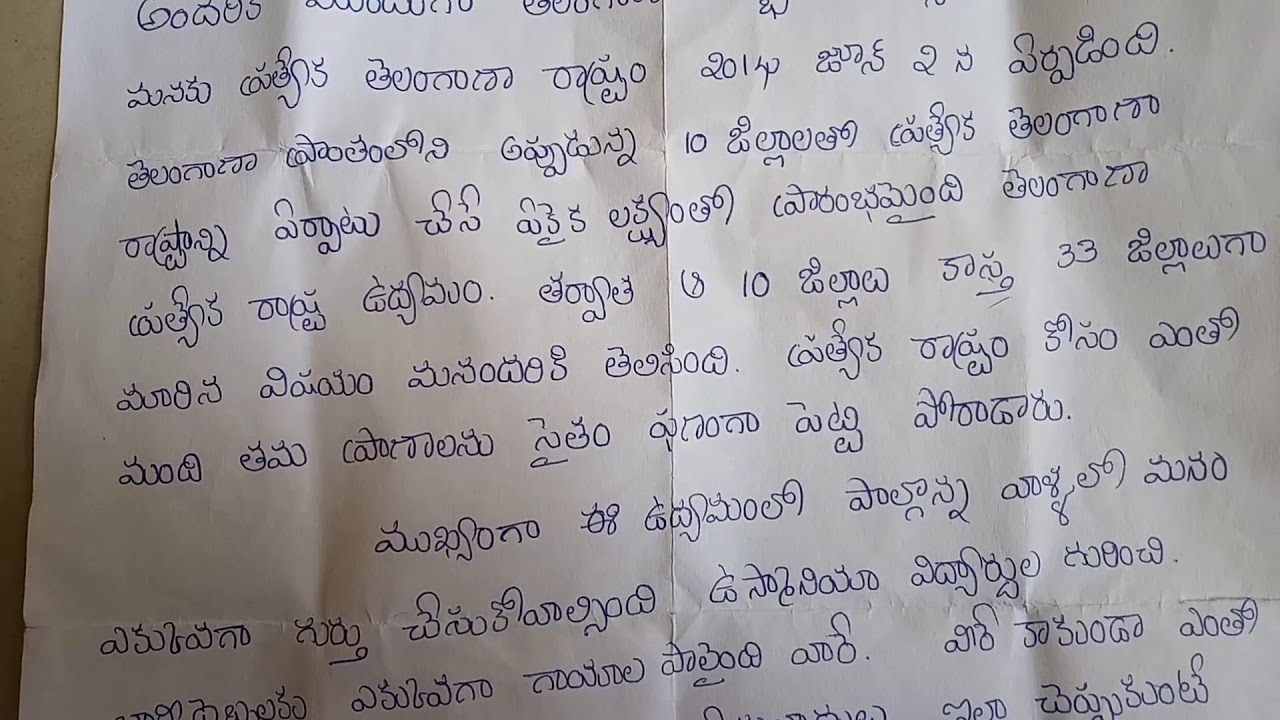 అందరికి ముందుగా
మనకు ప్రత్యేక తెలంగాణా రాష్ట్రం 2014 జూన్ 2 న ఏర్పడింది.
తెలంగాణా ప్రాంతంలోని అప్పుడున్న 10 జిల్లాలతో ప్రత్యేక తెలంగాణా
రాష్ట్రాన్ని ఏర్పాటు చేసే ఏకైక లక్ష్యంతో ప్రారంభమైంది తెలంగాణా
ప్రత్యేక రాష్ట్ర ఉద్యమం. తర్వాత ఆ 10 జిల్లాలు కాస్త 33 జిల్లాలుగా
మారిన విషయం మనందరికి తెలిసింది. ప్రత్యేక రాష్ట్రం కోసం ఎంతో
మంది తమ ప్రాణాలను సైతం ఫణంగా పెట్టి పోరాడారు.
ముఖ్యంగా ఈ ఉద్యమంలో పాల్గొన్న వాళ్ళలో మనం
ఎక్కువగా గుర్తు చేసుకోవాల్సింది ఉస్మానియా విద్యార్థుల గురించి.
ఎక్కువగా గాయాల పాలైంది వారే. వీరే కాకుండా ఎంతో
ఇలా చెప్పుకుంటే